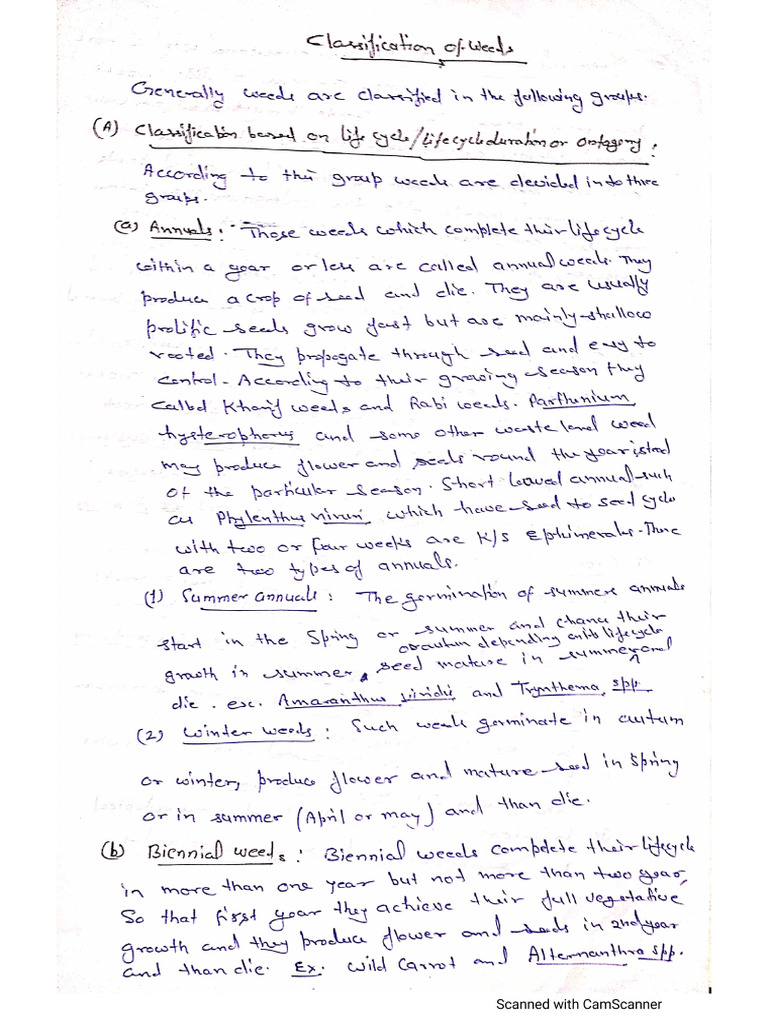 Classification of weeds
Generally weeds are classified in the following groups.
(A) Classification based on life cycle/Lifecycle duration or Ontogeny:
According to this group weeds are devided into three
groups.
(a) Annuals: Those weeds which complete their lifecycle
within a year or less are called annual weeds. They
produce a crop of seed and die. They are usually
prolific seeds grow fast but are mainly shallow
rooted. They propogate through seed and easy to
control. According to their growing season they
called Kharif weeds and Rabi weeds. Parthunium
hysterophorus and some other waste land weed
may produce flower and seeds round the year isted
of the particular season. Short leaved annual such
as Phylenthus niruri which have seed to seed cycle
with two or four weeks are K/S Ephimerals. There
are two types of annuals.
(1) Summer annuals: The germination of summers annuals
start in the Spring or summer and chance their
growth in summer, seed mature in summer and
or autumn depending on its lifecycle
die. exc. Amaranthus viridis and Trynthema spp.
(2) Winter weeds: Such weeds germinate in autum
or winter, produce flower and mature seed in spring
or in summer (April or may) and than die.
(b) Biennial weeds: Biennial weeds complete their lifecycle
in more than one year but not more than two year,
So that first year they achieve their full vegetative
growth and they produce flower and seeds in 2nd year
and than die. Ex. Wild Carrot and Alternanthra spp.
Scanned with CamScanner